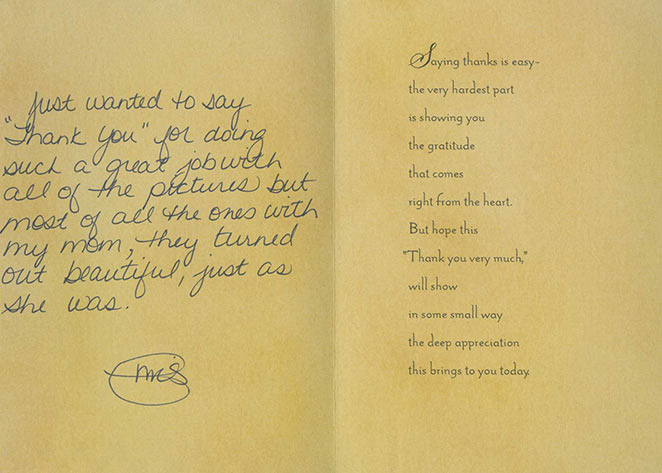 Just wanted to say
"Thank You" for doing
such a great job with
all of the pictures but
most of all the ones with
my mom, they turned
out beautiful, just as
she was.
Saying thanks is easy-
the very hardest part
is showing you
the gratitude
that comes
right from the heart.
But hope this
"Thank you very much,"
will show
in some small way
the deep appreciation
this brings to you today.